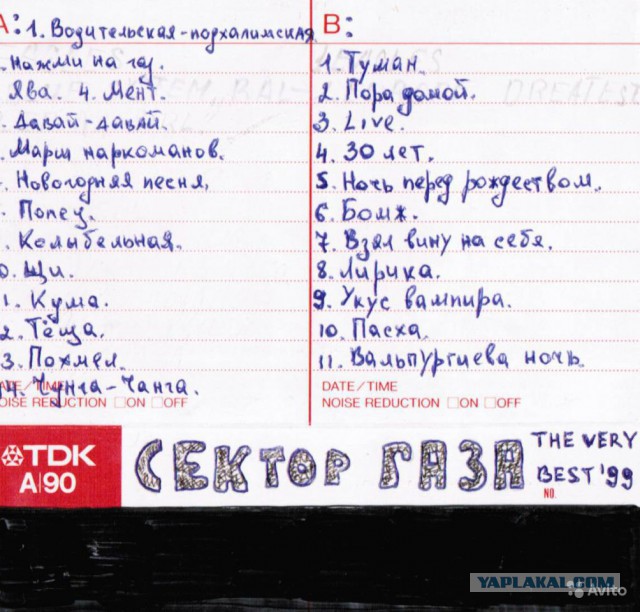 A: 1. Водительская-подхалимская
. Нажми на газ.
Ява. 4. Мент.
. Давай-давай.
. Марш наркоманов.
. Новогодняя песня.
. Попец.
. Колыбельная.
0. Щи.
1. Кума.
2. Тёща.
3. Похмел.
4. Чунга-Чанга.
DATE/TIME
NOISE REDUCTION □ON □OFF
B:
1. Туман.
2. Пора домой.
3. Live.
4. 30 лет.
5. Ночь перед рождеством.
6. Бомж.
7. Взял вину на себя.
8. Лирика.
9. Укус вампира.
10. Пасха.
11. Вальпургиева ночь.
DATE/TIME
NOISE REDUCTION □ON □OFF
TDK
A|90
СЕКТОР ГАЗА
THE VERY
BEST '99
NO.
YAPLAKAL.COM
Avito